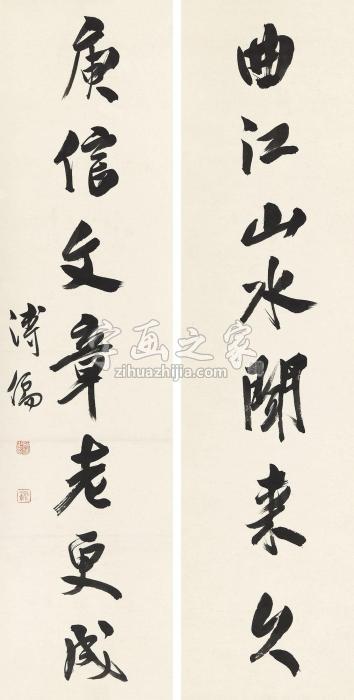 曲江山水聞來久
庾信文章老更成
溥儒
字画之家
zihuazhijia.com